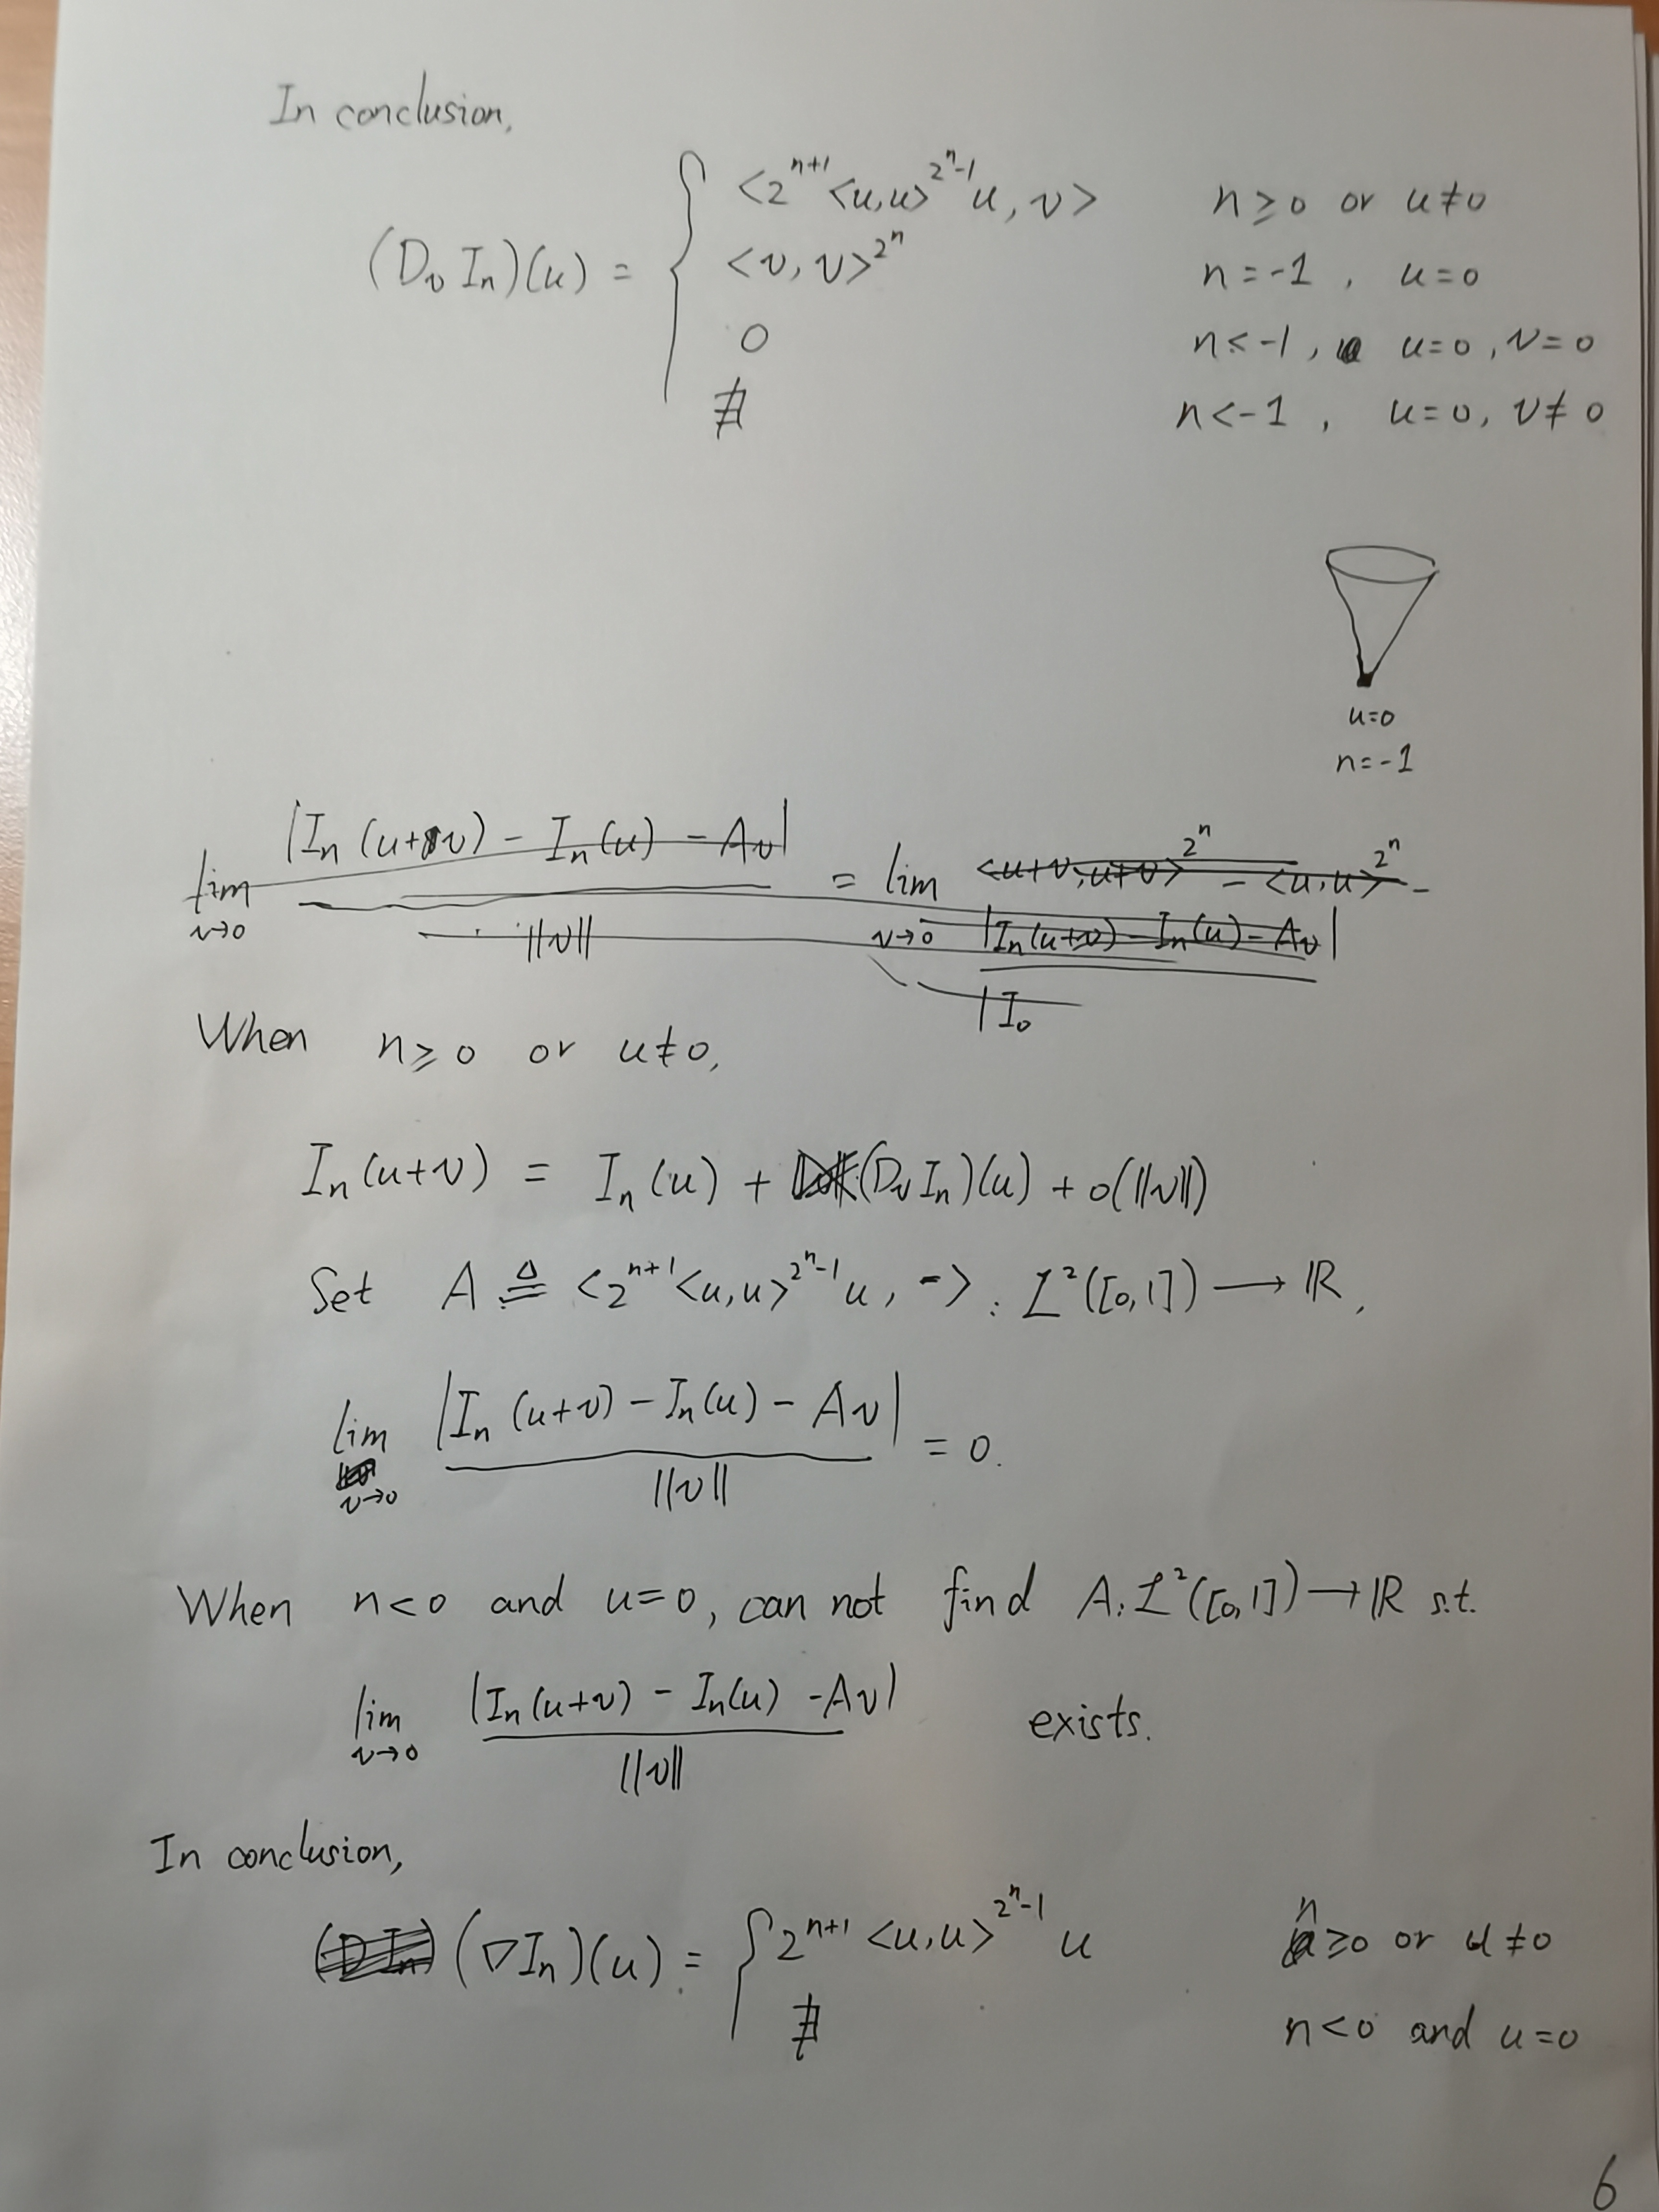 In conclusion,
(D_v I_n)(u) = { <2^{n+1} <u,u>^{2^n-1} u, v>    n ≥ 0 or u ≠ 0
<v, v>^{2^n}    n = -1 , u = 0
0    n < -1 , u = 0 , v = 0
∄    n < -1 , u = 0, v ≠ 0
u=0
n=-1
lim_{v→0} |I_n (u+v) - I_n (u) - Av| / ||v|| = lim_{v→0} <u+v, u+v>^{2^n} - <u,u>^{2^n} -
|I_n(u+v) - I_n(u) - Av|
|I_0
When n ≥ 0 or u ≠ 0,
I_n (u+v) = I_n (u) + (D_v I_n)(u) + o(||v||)
Set A ≜ <2^{n+1} <u,u>^{2^n-1} u, -> : L²([0,1]) → ℝ,
lim_{v→0} |I_n (u+v) - I_n (u) - Av| / ||v|| = 0.
When n < 0 and u = 0, can not find A: L²([0,1]) → ℝ s.t.
lim_{v→0} |I_n (u+v) - I_n (u) - Av| / ||v|| exists.
In conclusion,
(∇I_n)(u) = { 2^{n+1} <u,u>^{2^n-1} u    n ≥ 0 or u ≠ 0
∄    n < 0 and u = 0
6